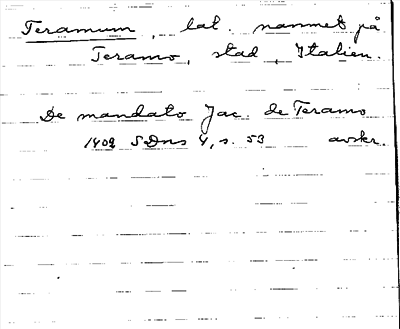 Teramum, lat. namnet på
Teramo, stad, Italien.
De mandato Jac. de Teramo
1409 SDns 4, s. 53 avskr.